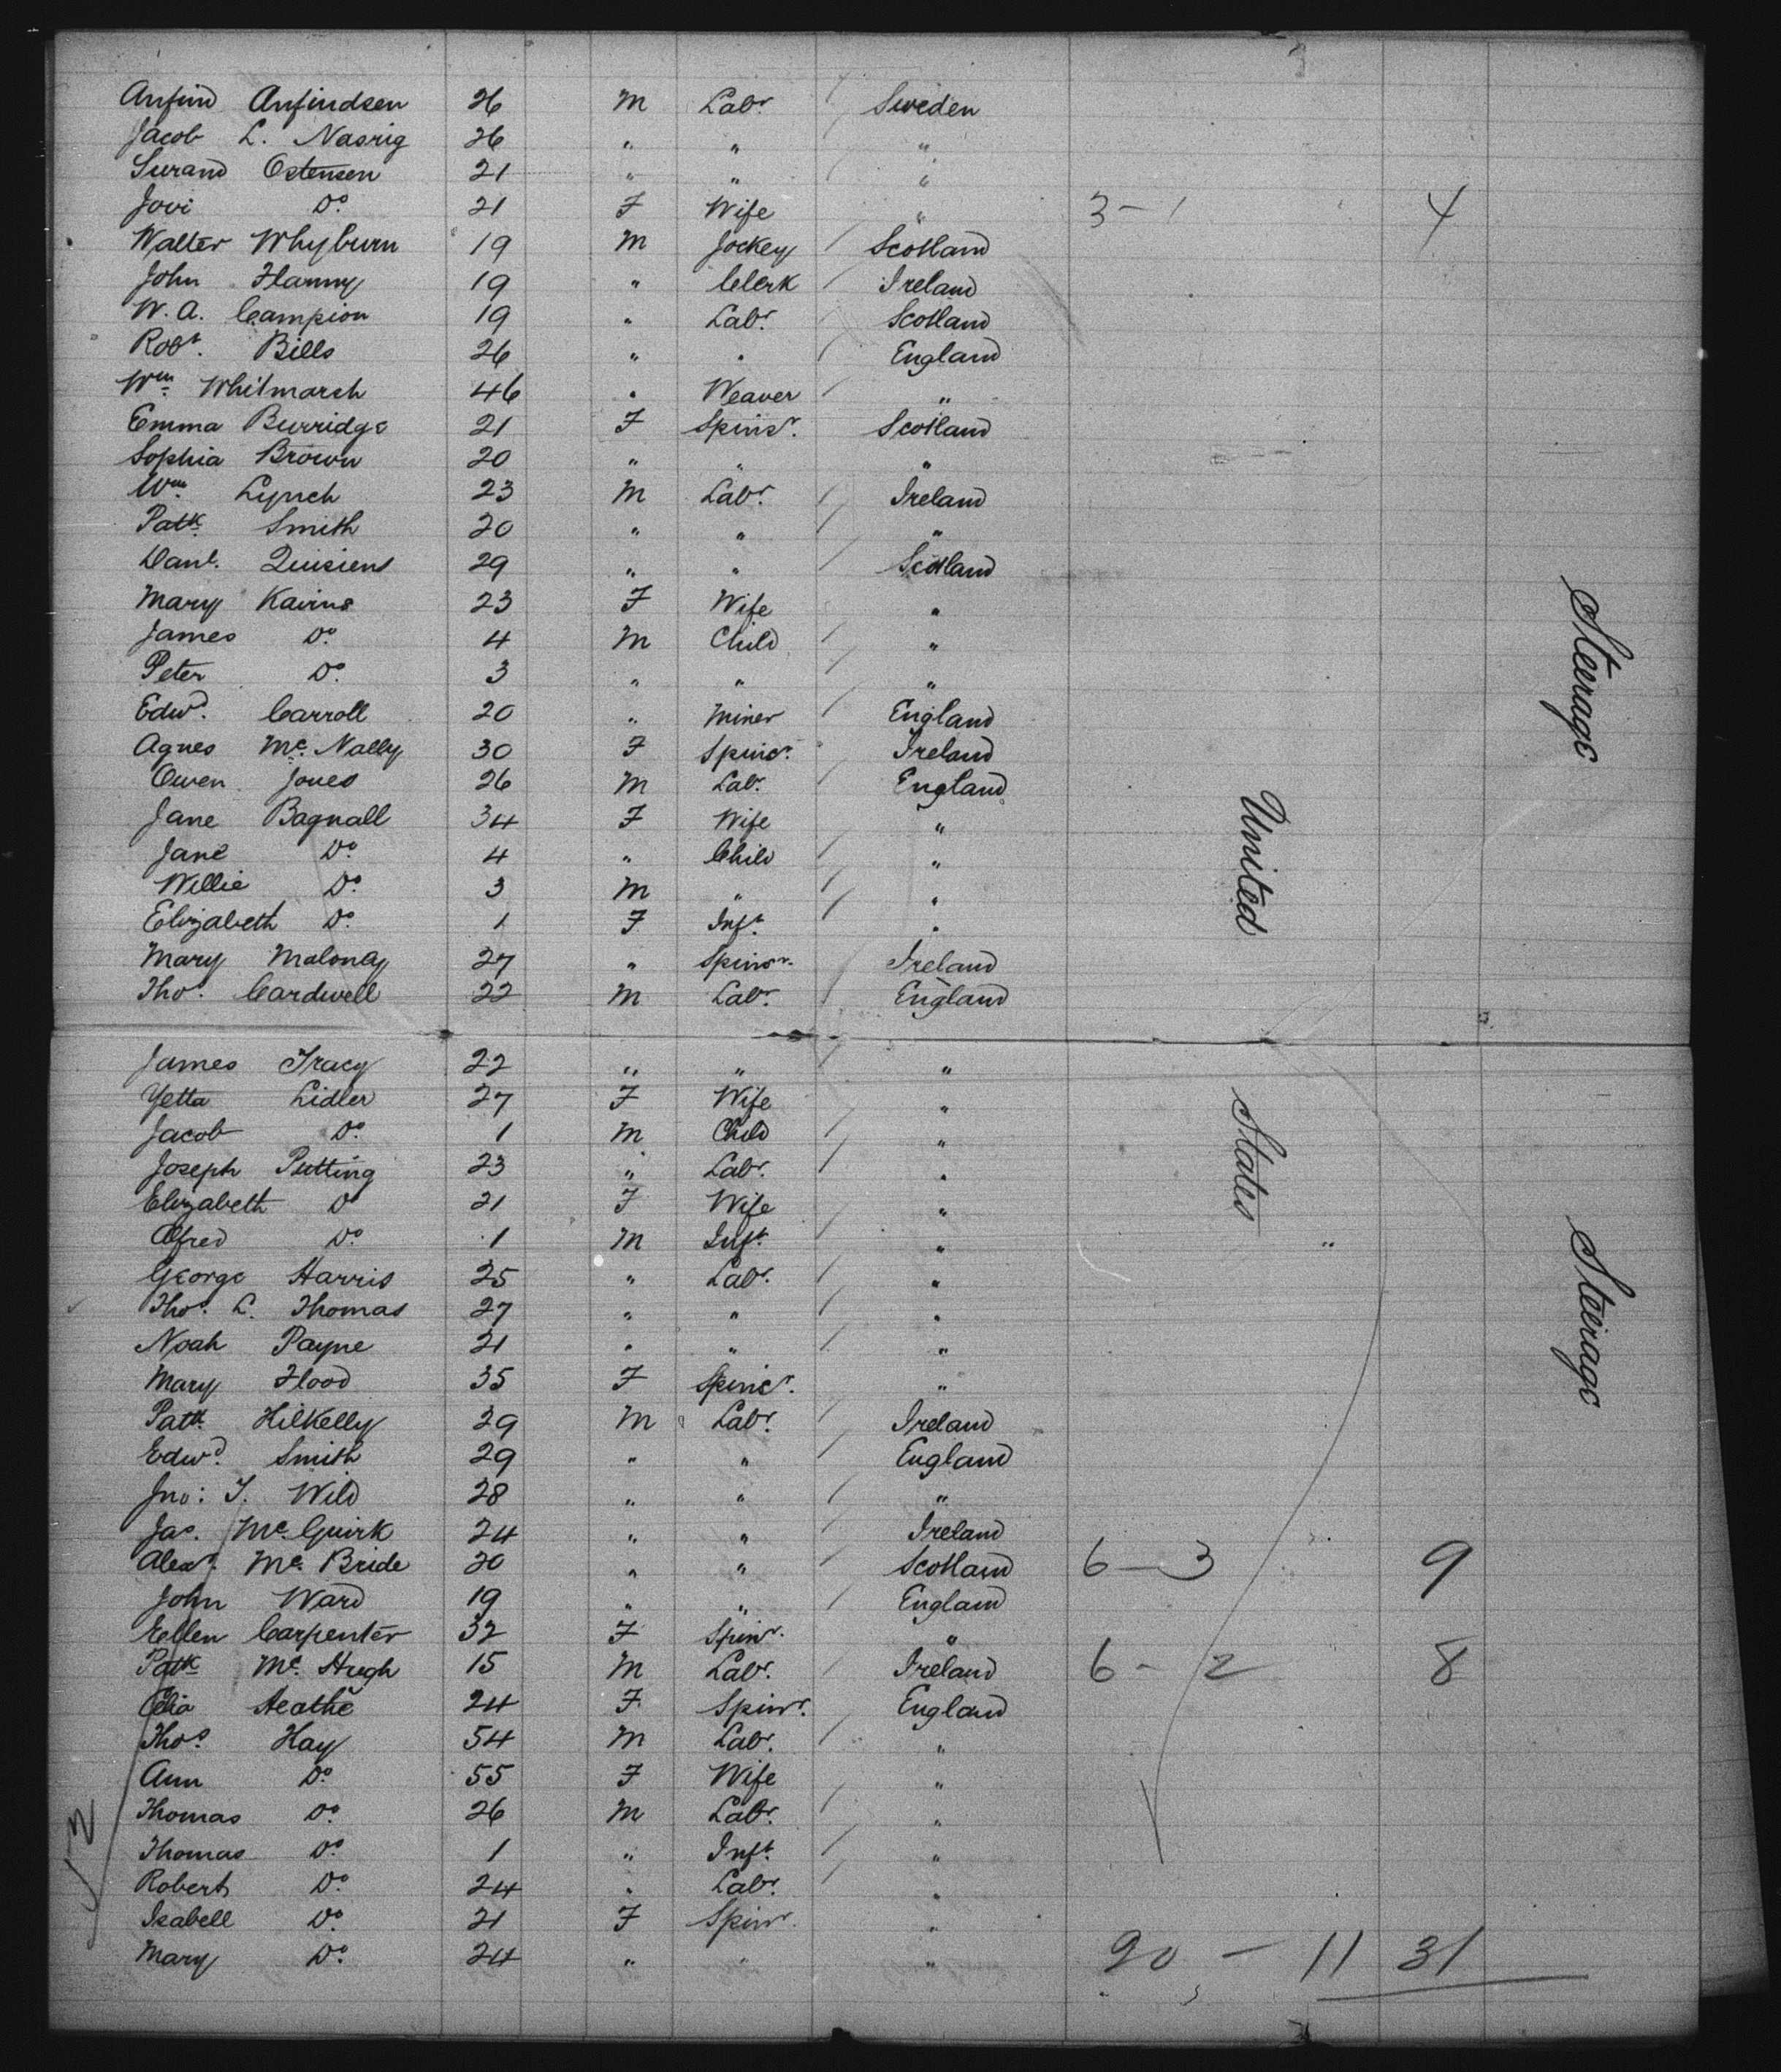 Anfind Anfindsen 26 M Labr. Sweden
Jacob L. Nasrig 26 " " "
Surand Ostensen 21 " " "
Jovi Do. 21 F Wife " 3-1 4
Walter Whyburn 19 M Jockey Scotland
John Flanny 19 " Clerk Ireland
W. A. Campion 19 " Labr. Scotland
Robt. Bills 26 " " England
Wm. Whitmarsh 46 " Weaver "
Emma Burridge 21 F Spinsr. Scotland
Sophia Brown 20 " " "
Wm. Lynch 23 M Labr. Ireland
Patk. Smith 20 " " "
Danl. 29 " " Scotland
Mary Kairns 23 F Wife "
James Do. 4 M Child "
Peter Do. 3 " " "
Edwd. Carroll 20 " Miner England
Agnes Mc. Nally 30 F Spinsr. Ireland
Owen Jones 26 M Labr. England
Jane Bagnall 34 F Wife "
Jane Do. 4 " Child "
Willie Do. 3 M " "
Elizabeth Do. 1 F Inft. "
Mary Malony 27 " Spinsr. Ireland
Thos. Cardwell 22 M Labr. England
James Tracy 22 " " "
Yetta Lidler 27 F Wife "
Jacob Do. 1 M Child "
Joseph Putting 23 " Labr. "
Elizabeth Do 21 F Wife "
Alfred Do. 1 M Inft. " "
George Harris 25 " Labr. "
Thos. L. Thomas 27 " " "
Noah Payne 21 " " "
Mary Flood 35 F Spinsr. "
Patk. Hilkelly 29 M Labr. Ireland
Edwd. Smith 29 " " England
Jno: T. Wild 28 " " "
Jas. Mc. Guirk 24 " " Ireland
Alexr. Mc. Bride 20 " " Scotland 6-3 9
John Ward 19 " " England
Ellen Carpenter 32 F Spinr. "
Patk Mc. Hugh 15 M Labr. Ireland 6-2 8
Celia Heathe 24 F Spinr. England
Thos. Hay 54 M Labr. "
Ann Do. 55 F Wife "
Thomas Do. 26 M Labr. "
Thomas Do. 1 " Inft. "
Robert Do. 24 " Labr. "
Isabell Do. 21 F Spinr. "
Mary Do. 24 " " " 20 - 11 31
United
States
Steerage
Steerage